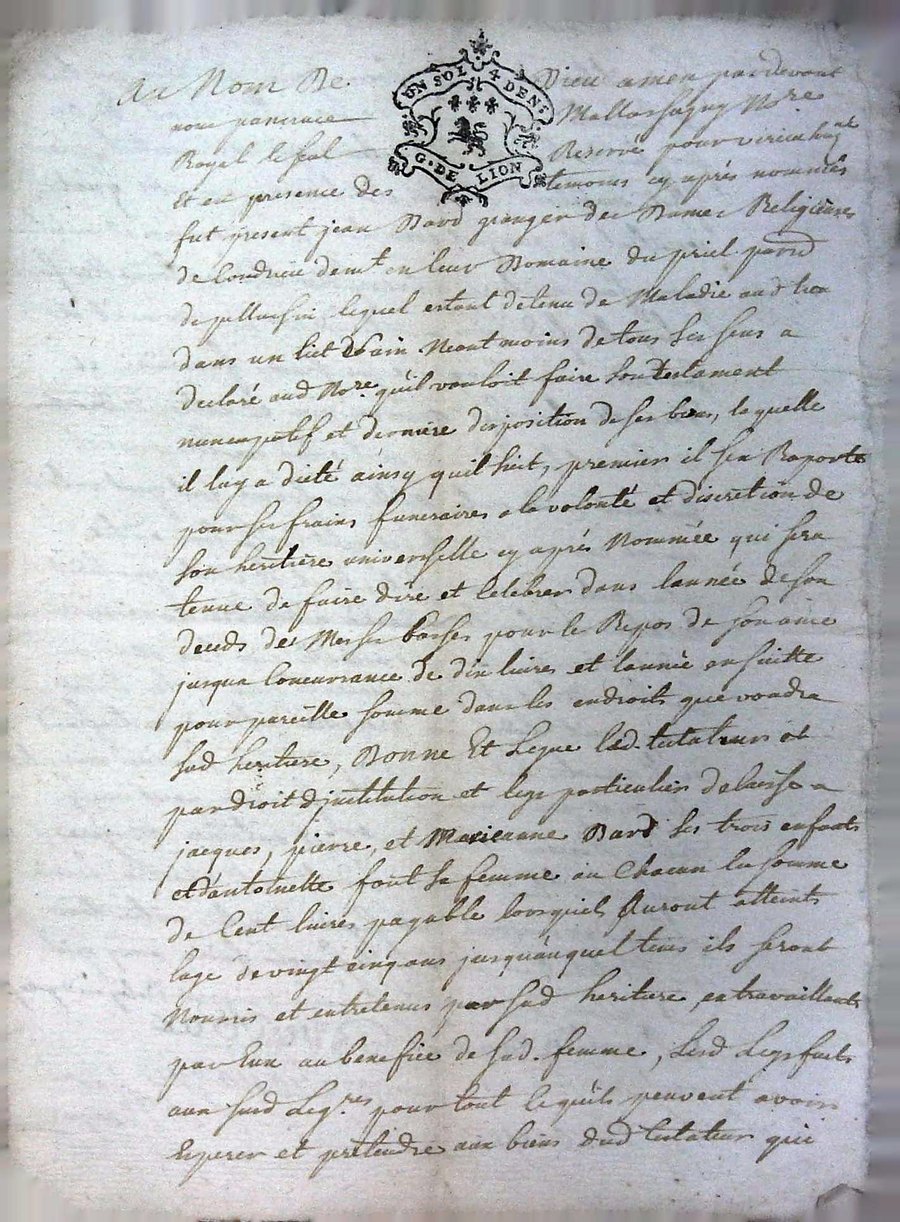 UN SOL 4 DENS
G. DE LION
Au Nom De Dieu amen pardevant
nous pancrace Mallassagny Nore
Royal le sol Reservé pour
Et en presence des temoins cy aprés nommés
fut present jean Bard granger des Dames Religieuses
de Condrieu demt en leur Domaine du pril parr
de lequel estant detenu de Maladie aud lieu
dans un lict sain Neantmoins de tous ses sens a
declaré aud Nore qu'il vouloit faire son testament
nuncupatif et derniere disposition de ses biens, laquelle
il luy a dicté ainsy quil suit, premier il sen Raporte
pour ses frais funeraires a la volonté et discretion de
son heritiere universelle cy aprés Nommée qui sera
tenue de faire dire et Celebrer dans lannée de son
deceds des Messes basses pour le Repos de son ame
jusqua Concurrance de dix livres et lannée ensuitte
pour pareille somme dans les endroits que voudra
sad heritiere, Donne Et Legue led. testateur et
par droit djnstitution et legs particulier delaisse a
jacques, pierre, et Marieanne Bard ses trois enfants
et d'antoinette font sa femme a un Chacun la somme
de Cent livres payable lorsquiels Auront atteints
lage de vingt cinq ans jusquauquel tems ils seront
Nourris et entretenus par sad heritiere, en travaillants
par Eux au benefice de sad. femme, Lesd Legs faits
aux susd Legres pour tout ce quils peuvent avoir
Esperer et pretendre aux biens dud testateur qui